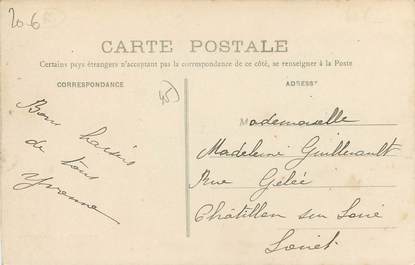 20-6
CARTE POSTALE
Certains pays étrangers n'acceptant pas la correspondance de ce côté, se renseigner à la Poste
CORRESPONDANCE
ADRESSE
45
Bons baisers
de tous
Yvonne
Mademoiselle
Madeleine Guillerault
Rue Gélée
Châtillon sur Loire
Loiret